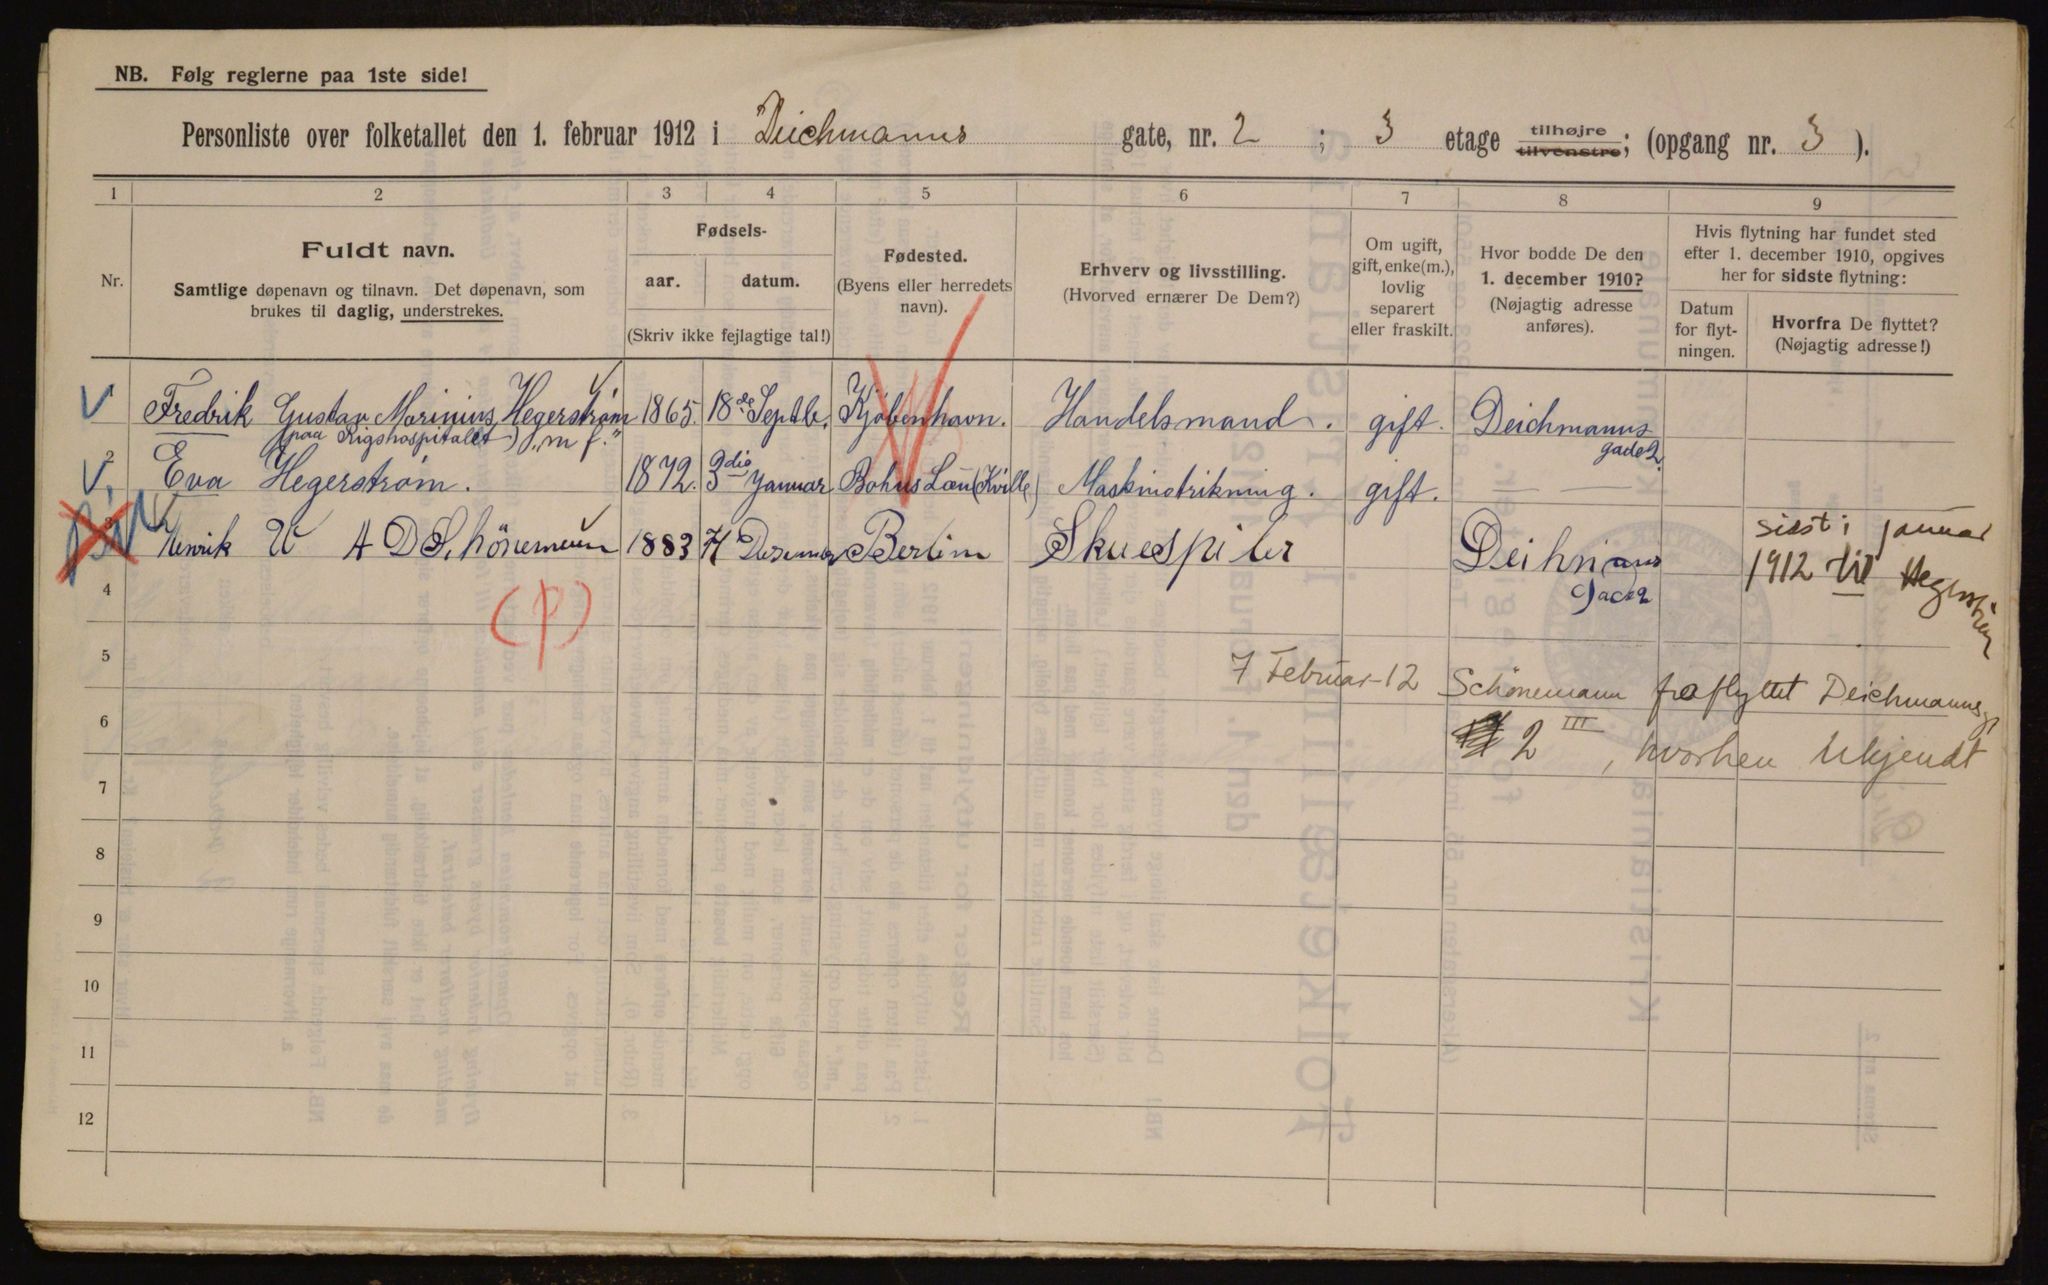 NB. Følg reglerne paa 1ste side!
Personliste over folketallet den 1. februar 1912 i Deichmanns gate, nr. 2 ; 3 etage tilhøjre tilvenstre; (opgang nr. 3 ).
1 2 3 4 5 6 7 8 9
Nr.
Fuldt navn.
Samtlige døpenavn og tilnavn. Det døpenavn, som
brukes til daglig, understrekes.
Fødsels-
aar. datum.
(Skriv ikke fejlagtige tal!)
Fødested.
(Byens eller herredets
navn).
Erhverv og livsstilling.
(Hvorved ernærer De Dem?)
Om ugift,
gift, enke(m.),
lovlig
separert
eller fraskilt.
Hvor bodde De den
1. december 1910?
(Nøjagtig adresse
anføres).
Hvis flytning har fundet sted
efter 1. december 1910, opgives
her for sidste flytning:
Datum
for flyt-
ningen.
Hvorfra De flyttet?
(Nøjagtig adresse!)
Fredrik Gustav Marinius Hegerstrøm 1865. 18de Septbr. Kjøbenhavn. Handelsmand. gift. Deichmanns
(paa Rigshospitalet) "m f." gade 2.
2 Eva Hegerstrøm. 1872. 3die Januar Bohus Læn (Kville) Maskinstrikning. gift. — —
3 Henrik W A D Schönemann 1883 Desember Berlin Skuespiler
sidst i januar
1912 til
4
(p)
5
7 Februar-12 Schönemann fraflyttet Deichmannsgt
6
2 III, hvorhen Ukjendt
7
8
9
10
11
12